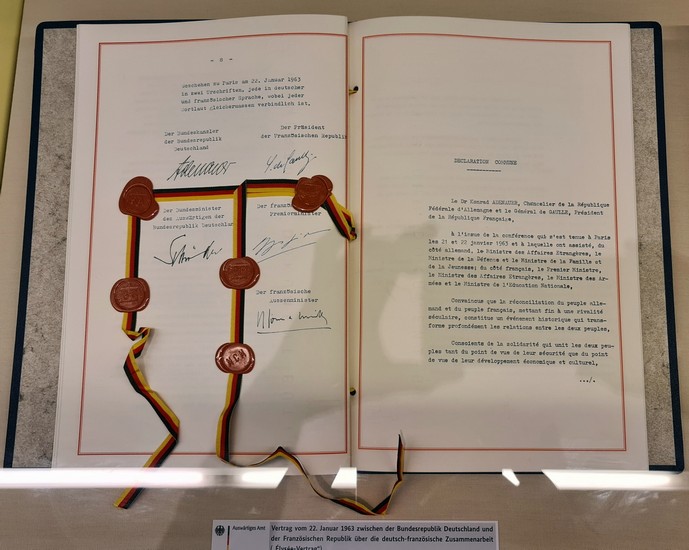 - 8 -
Geschehen zu Paris am 22. Januar 1963
in zwei Urschriften, jede in deutscher
und französischer Sprache, wobei jeder
Wortlaut gleichermassen verbindlich ist.
Der Bundeskanzler
der Bundesrepublik
Deutschland
Der Präsident
der Französischen Republik
Adenauer
Der Bundesminister
des Auswärtigen der
Bundesrepublik Deutschland
Der
Premierminister
Der französische
Aussenminister
DECLARATION COMMUNE
Le Dr Konrad ADENAUER, Chancelier de la République
Fédérale d'Allemagne et le Général de GAULLE, Président
de la République Française,
A l'issue de la conférence qui s'est tenue à Paris
les 21 et 22 janvier 1963 et à laquelle ont assisté, du
côté allemand, le Ministre des Affaires Etrangères, le
Ministre de la Défense et le Ministre de la Famille et
de la Jeunesse; du côté français, le Premier Ministre,
le Ministre des Affaires Etrangères, le Ministre des Ar-
mées et le Ministre de l'Education Nationale,
Convaincus que la réconciliation du peuple alle-
mand et du peuple français, mettant fin à une rivalité
séculaire, constitue un événement historique qui trans-
forme profondément les relations entre les deux peuples,
Conscients de la solidarité qui unit les deux peu-
ples tant du point de vue de leur sécurité que du point
de vue de leur développement économique et culturel,
.../.
Auswärtiges Amt
Vertrag vom 22. Januar 1963 zwischen der Bundesrepublik Deutschland und
der Französischen Republik über die deutsch-französische Zusammenarbeit
("Elysée-Vertrag")